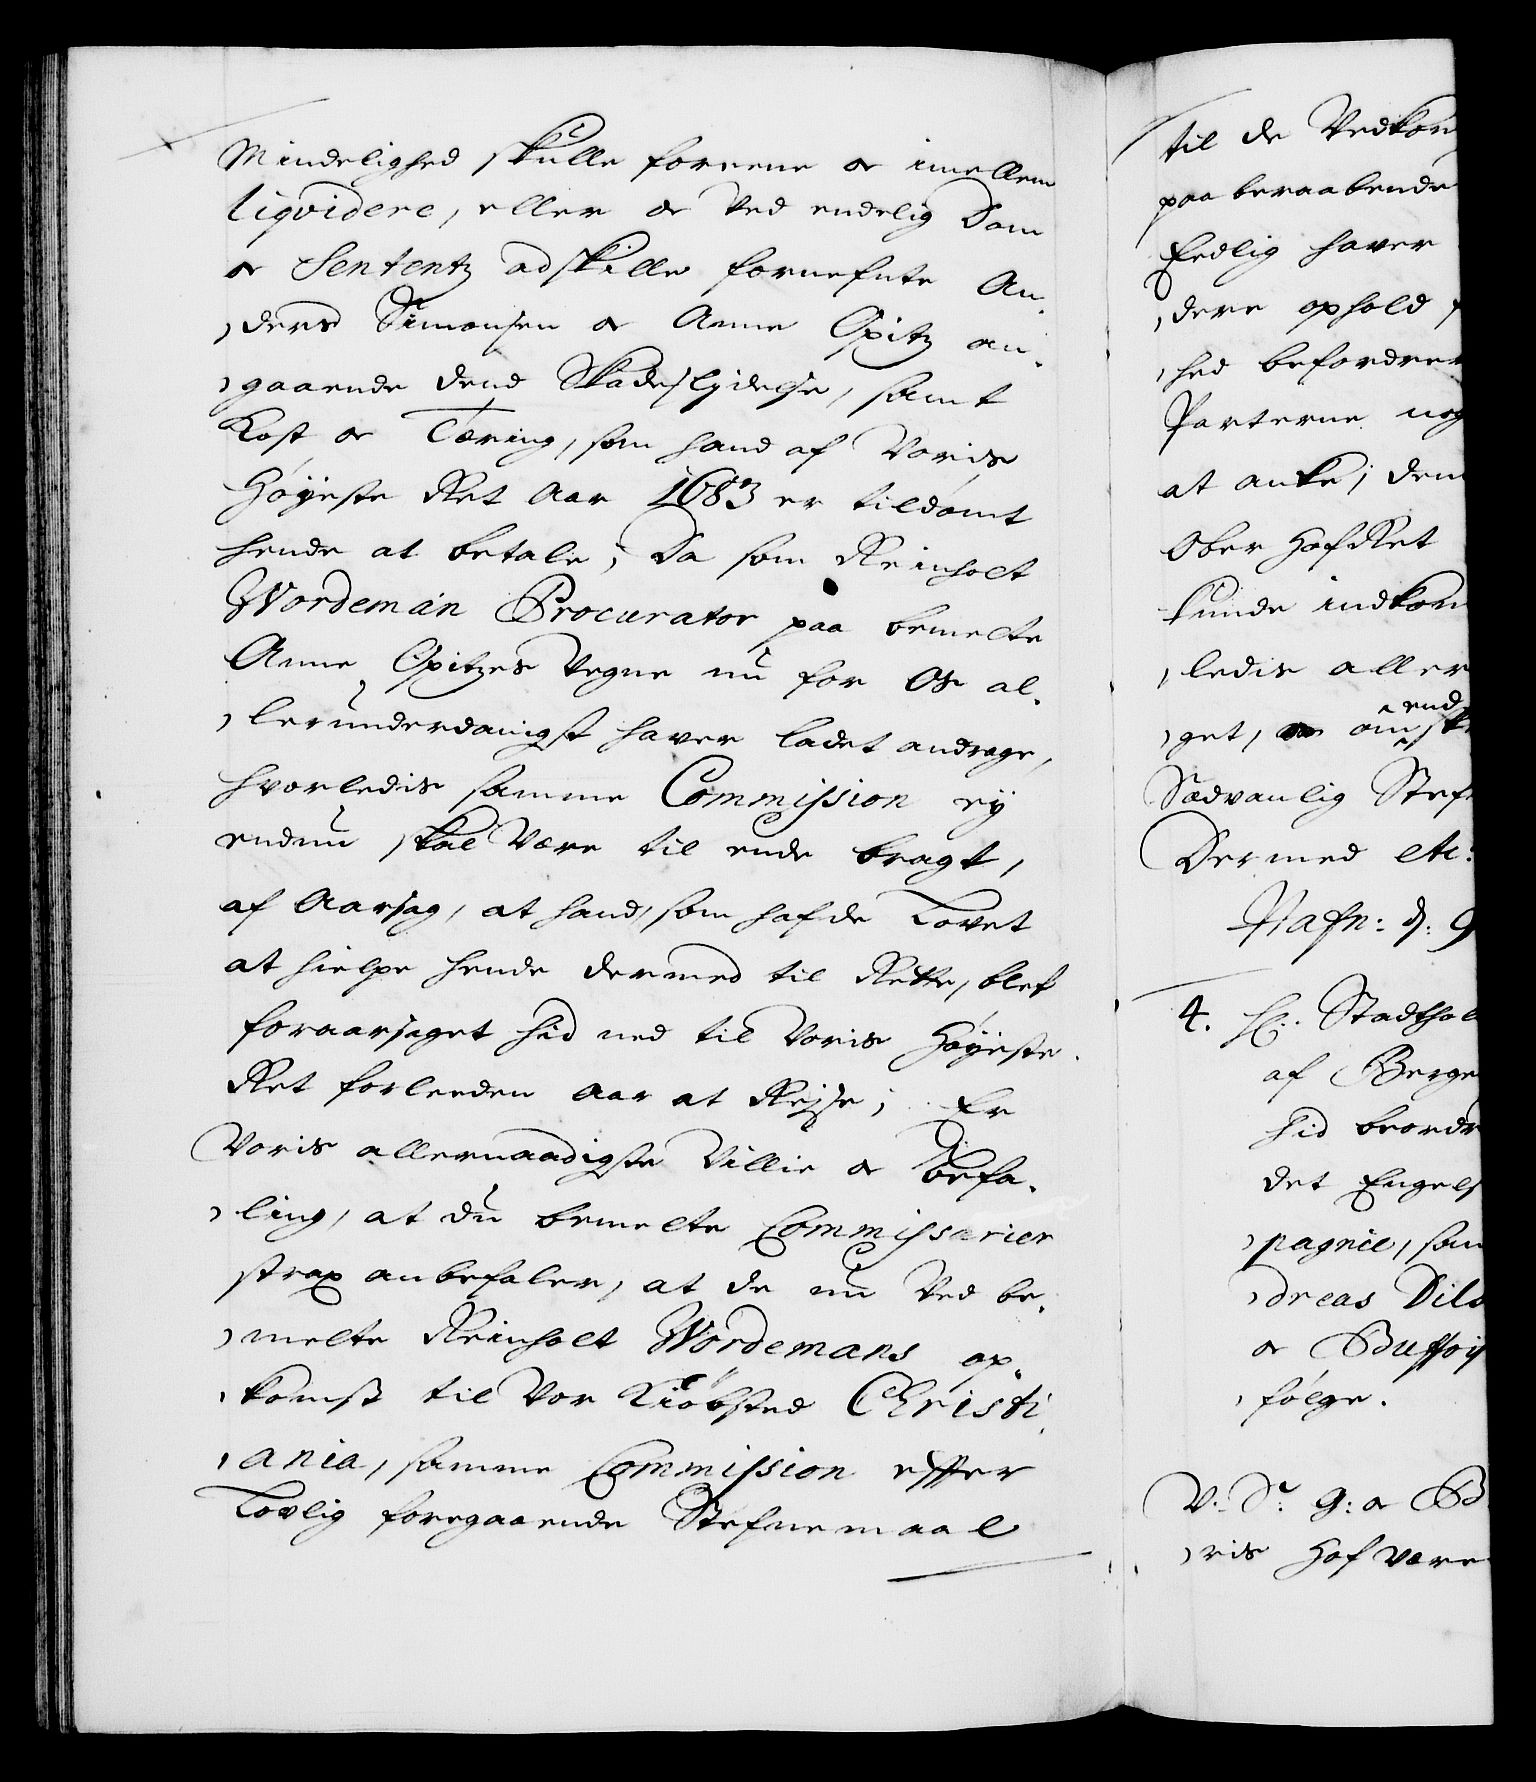 Mindelighed skulle foreene oc imellem
liqvidere, eller oc ved endelig Dom
oc Sententz adskille fornefnte An-
ders Simonsen oc Anne Opitz an-
gaaende dend Skadeslydelse, samt
Kost oc Tæring, som hand af Voris
Høyeste Ret Aar 1683 er tildømt
hende at betale; Da som Reinholt
Wordeman Procurator paa bemelte
Anne Opitzes Vegne nu for Os al-
lerunderdanigst haver ladet andrage,
hvorledis samme Commission ey
endnu skal være til ende bragt,
af Aarsag, at hand, som hafde Lovet
at hielpe hende dermed til Rette, blef
foraarsaget hid ned til Voris Høyeste
Ret forleeden Aar at Rejse; Er
Voris allernaadigste Villie oc Befa-
ling, at du bemelte Commissarier
strax anbefaler, at de nu ved be-
melte Reinholt Wordemans op-
komst til Vor Kiøbsted Christi-
ania, samme Commission effter
Lovlig foregaaende Stefnemaal
til de Vedkom
paa beraabende
Eedlig haver
dere ophold
hed befordrer
Parterne nog
at anke, dem
Ober Hof Ret
kunde indkom
ledis aller
end
get, om sk
Sædvanlig Stef
Dermed etc:
Hafn: d: 9
4. H: Stadthol
af Berge
hid beordr
det Engels
pagnie, som
dreas Dils
oc Bussoy
følge.
V: Sr: G: oc B
ris Hof være